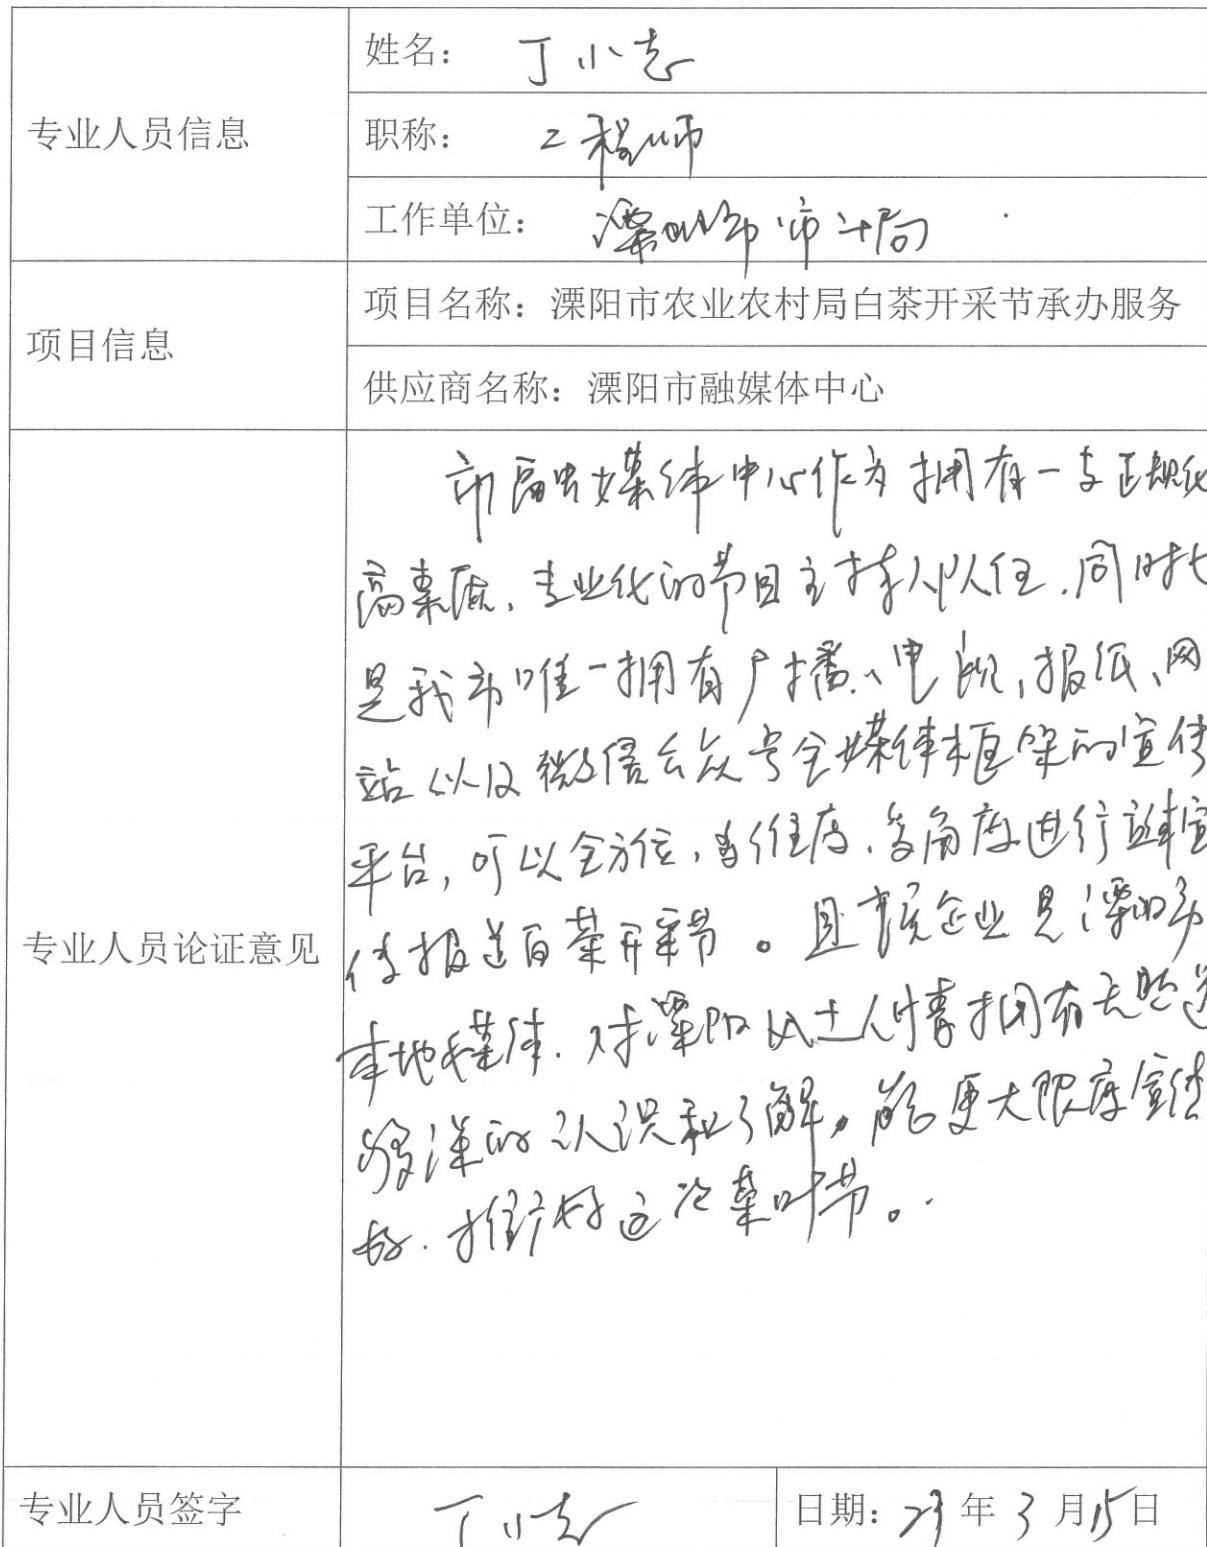 专业人员信息
姓名：丁小志
职称：工程师
工作单位：溧阳市审计局
项目信息
项目名称：溧阳市农业农村局白茶开采节承办服务
供应商名称：溧阳市融媒体中心
专业人员论证意见
市融媒体中心作为拥有一支正规化
高素质、专业化的节目主持人队伍，同时也
是我市唯一拥有广播、电视、报纸、网
站以及微信公众号全媒体框架的宣传
平台，可以全方位，多维度、多角度进行宣
传报道白茶开采节。且该企业是溧阳市
本地媒体，对溧阳风土人情拥有无比
够深的认识和了解，能更大限度宣传
好、推广好这次茶叶节。
专业人员签字
丁小志
日期：23年3月15日